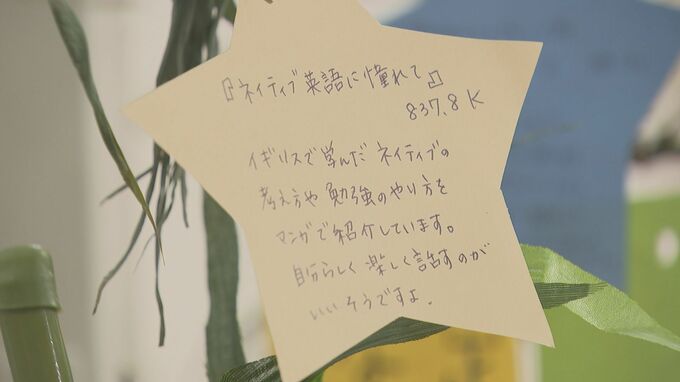 『ネイティブ英語に憧れて』
837.8 K
イギリスで学んだ ネイティブの
考え方や 勉強のやり方を
マンガで紹介しています。
自分らしく 楽しく話すのが
いいそうですよ.